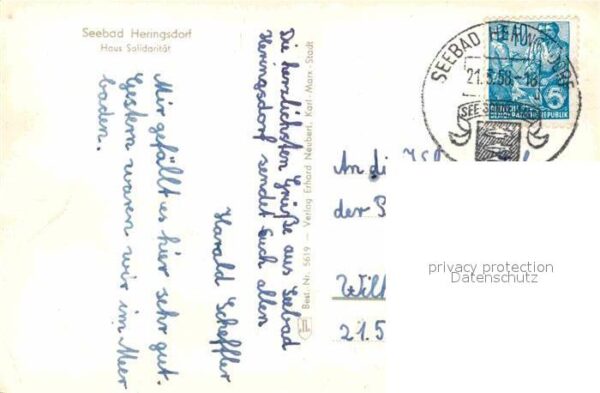 Seebad Heringsdorf
Haus Solidarität
Mir gefällt es hier sehr gut.
Gestern waren wir im Meer
baden.
Die herzlichsten Grüße aus Seebad
Heringsdorf sendet Euch allen
Harald Scheffler
Best.-Nr. 5619 — Verlag Erhard Neubert, Karl-Marx-Stadt
SEEBAD HERINGSDORF
21.5.58-18
5
DEUTSCHE
DEMOKRATISCHE REPUBLIK
An die
der
21.5
privacy protection
Datenschutz